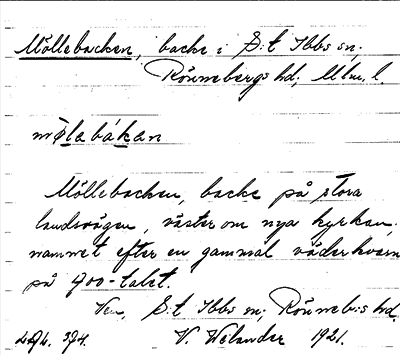 Möllebacken, backe i S:t Ibbs sn,
Rönnebergs hd, Mlm. l.
mö̀labákan
Möllebacken, backe på stora
landsvägen, väster om nya kyrkan,
namnet efter en gammal väderkvarn
på 900-talet.
Ven, S:t Ibbs sn, Rönnebs hd.
V. Welander 1921.